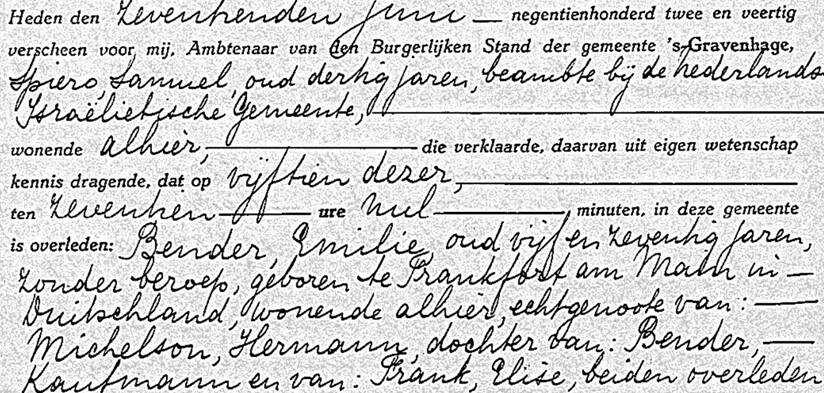 Heden den zeventienden Juni — negentienhonderd twee en veertig
verscheen voor mij, Ambtenaar van den Burgerlijken Stand der gemeente 's-Gravenhage,
Spiero, Samuel, oud dertig jaren, beambte bij de Nederlands
Israëlietische Gemeente,
wonende alhier, die verklaarde, daarvan uit eigen wetenschap
kennis dragende, dat op vijftien dezer,
ten zeventien ure nul minuten, in deze gemeente
is overleden: Bender, Emilie, oud vijf en zeventig jaren,
zonder beroep, geboren te Frankfort am Main in —
Duitschland, wonende alhier, echtgenoote van: —
Michelson, Hermann, dochter van: Bender, —
Kaufmann en van: Frank, Elise, beiden overleden